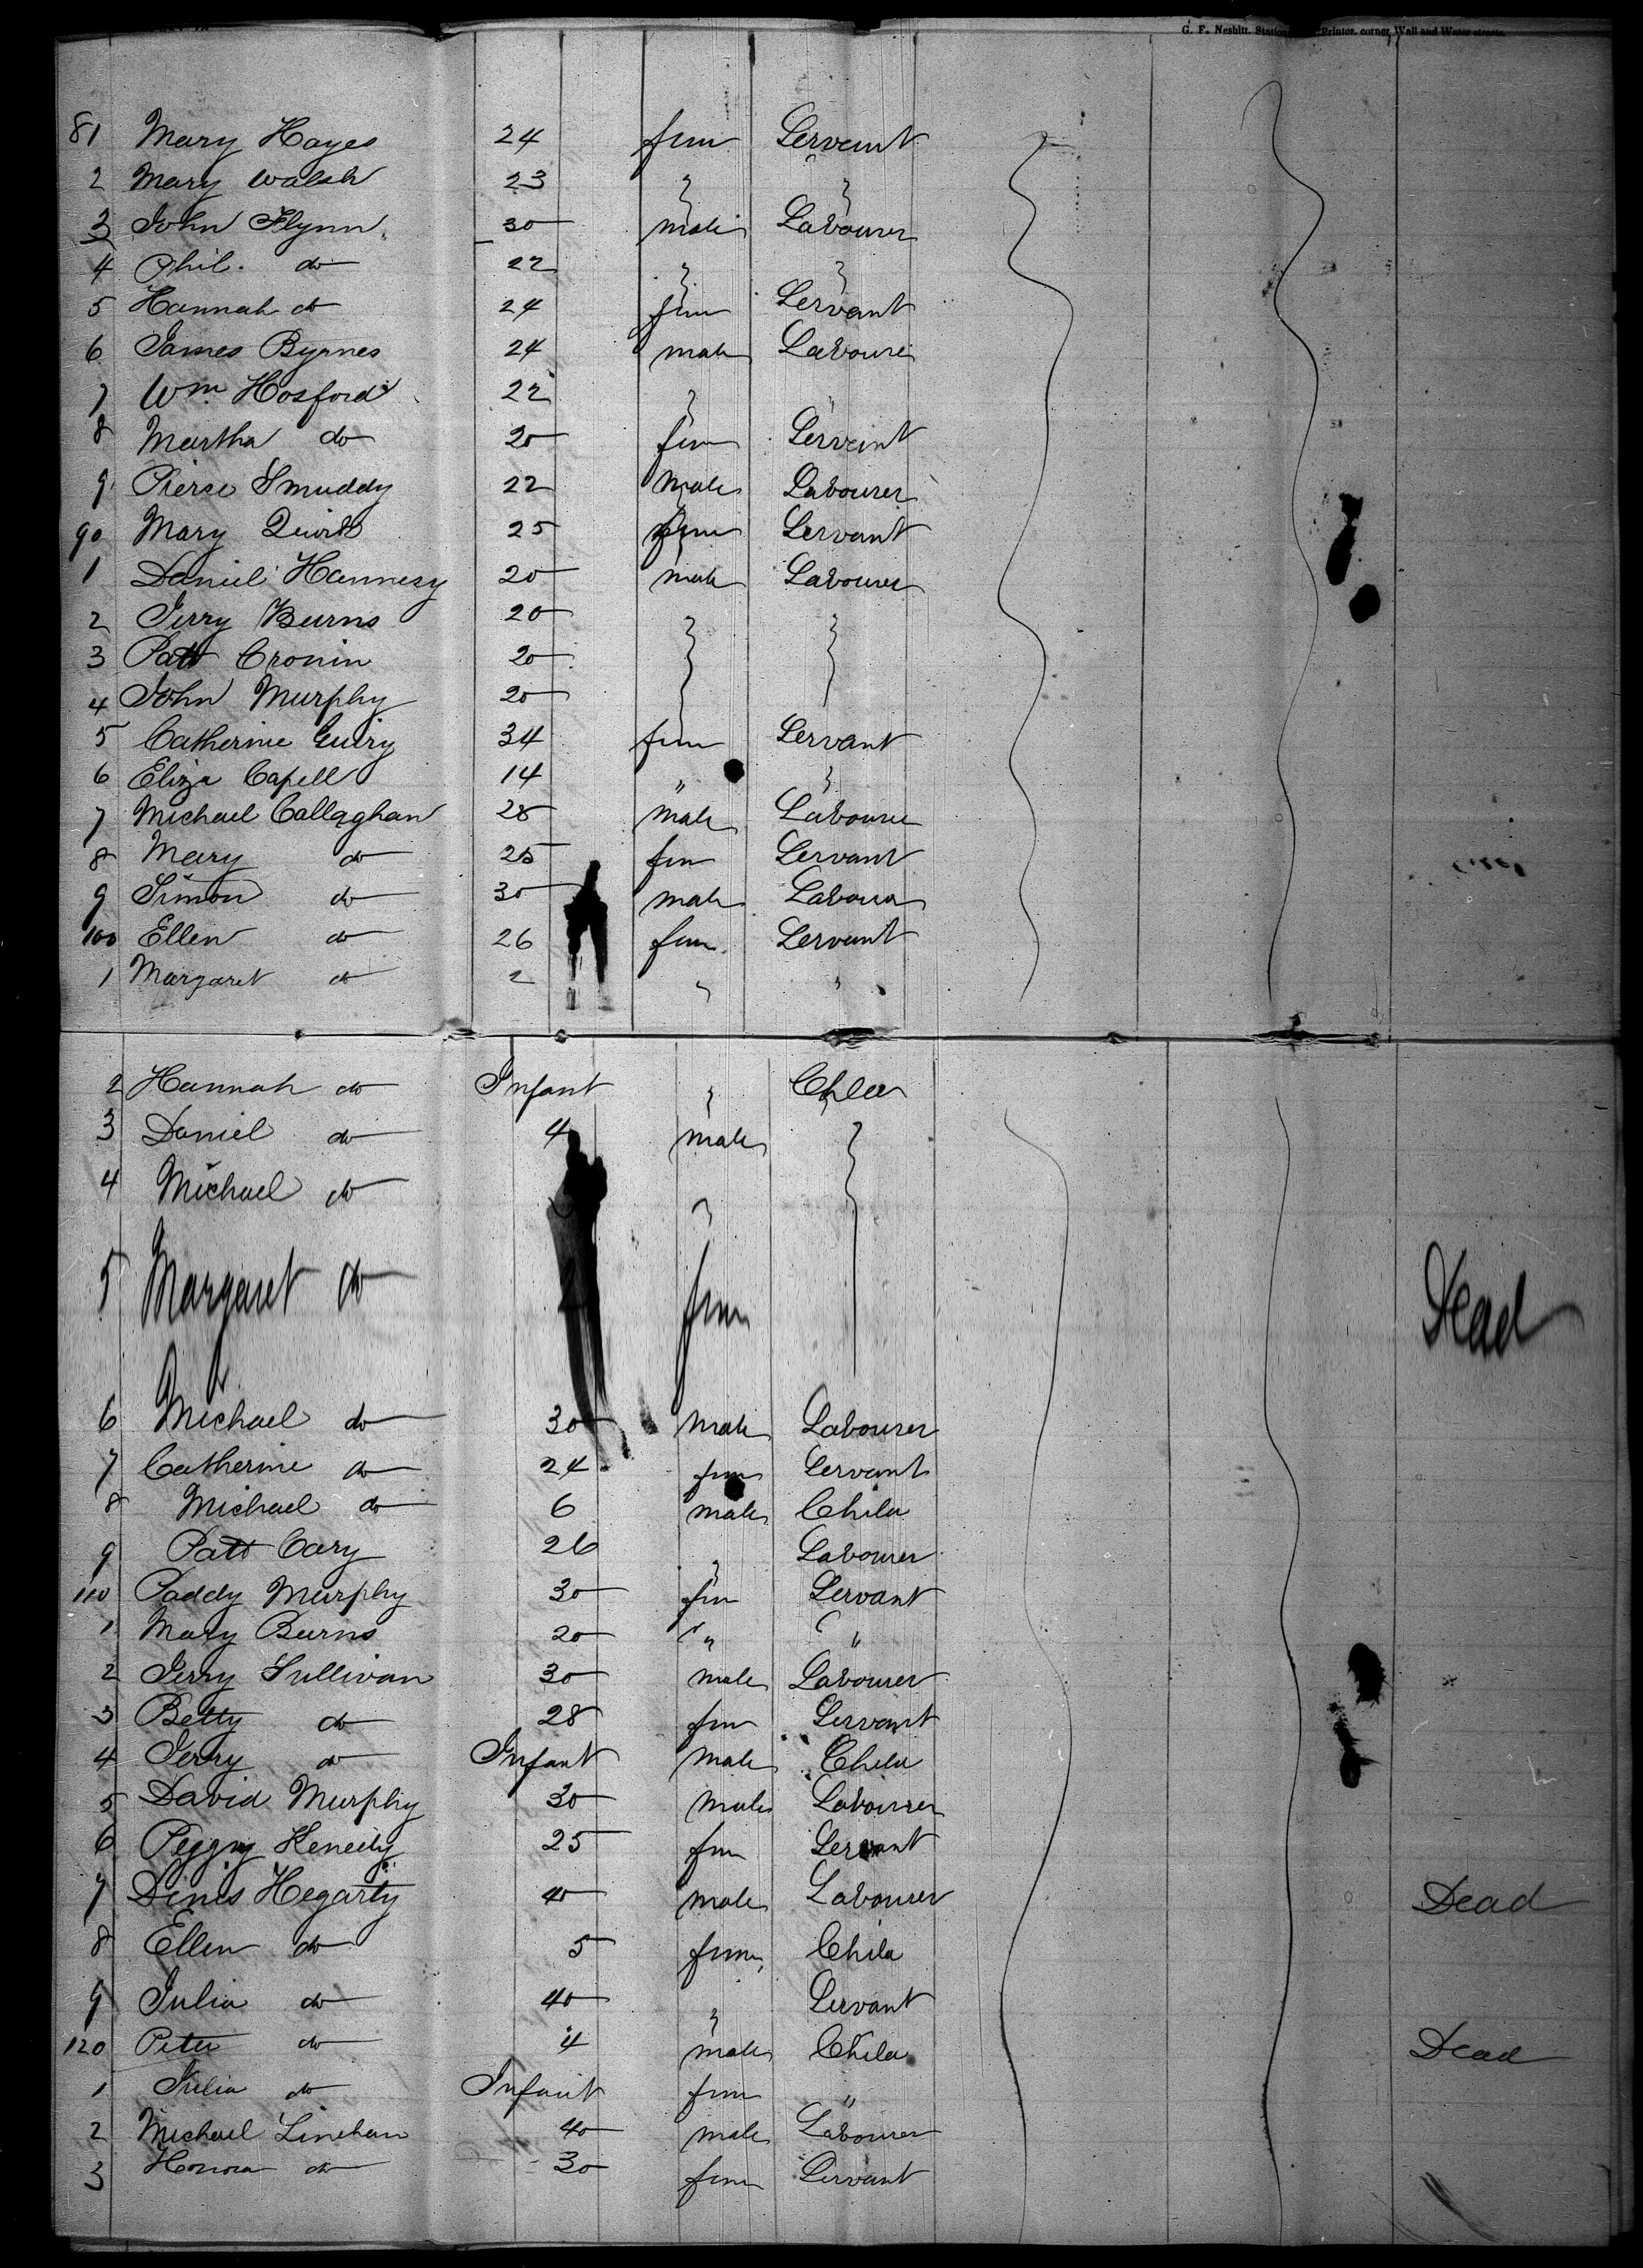 G. F. Nesbitt, Printer, corner Wall and Water streets.
81 Mary Hayes 24 fem Servant
2 Mary Walsh 23 " "
3 John Flynn 30 male Labourer
4 Phil. do 22 " "
5 Hannah do 24 fem Servant
6 James Byrnes 24 male Labourer
7 Wm Hosford 22 " "
8 Martha do 20 fem Servant
9 Pierce Smuddy 22 male Labourer
90 Mary Quirk 25 fem Servant
1 Daniel Hannesy 20 male Labourer
2 Jerry Burns 20 " "
3 Patt Cronin 20
4 John Murphy 20
5 Catherine Guiry 34 fem Servant
6 Eliza Capell 14 " "
7 Michael Callaghan 28 male Labourer
8 Mary do 25 fem Servant
9 Simon do 30 male Labourer
100 Ellen do 26 fem Servant
1 Margaret do 2 " "
2 Hannah do Infant " Child
3 Daniel do 4 male "
4 Michael do "
5 Margaret do 2 fem Dead
6 Michael do 30 male Labourer
7 Catherine do 24 fem Servant
8 Michael do 6 male Child
9 Patt Cary 26 " Labourer
110 Paddy Murphy 30 fem Servant
1 Mary Burns 20 " "
2 Jerry Sullivan 30 male Labourer
3 Betty do 28 fem Servant
4 Jerry do Infant male Child
5 David Murphy 30 male Labourer
6 Peggy Kenedy 25 fem Servant
7 Dinis Hegarty 40 male Labourer Dead
8 Ellen do 5 fem Child
9 Julia do 40 " Servant
120 Peter do 4 male Child Dead
1 Julia do Infant fem "
2 Michael Linehan 40 male Labourer
3 Honora do 30 fem Servant